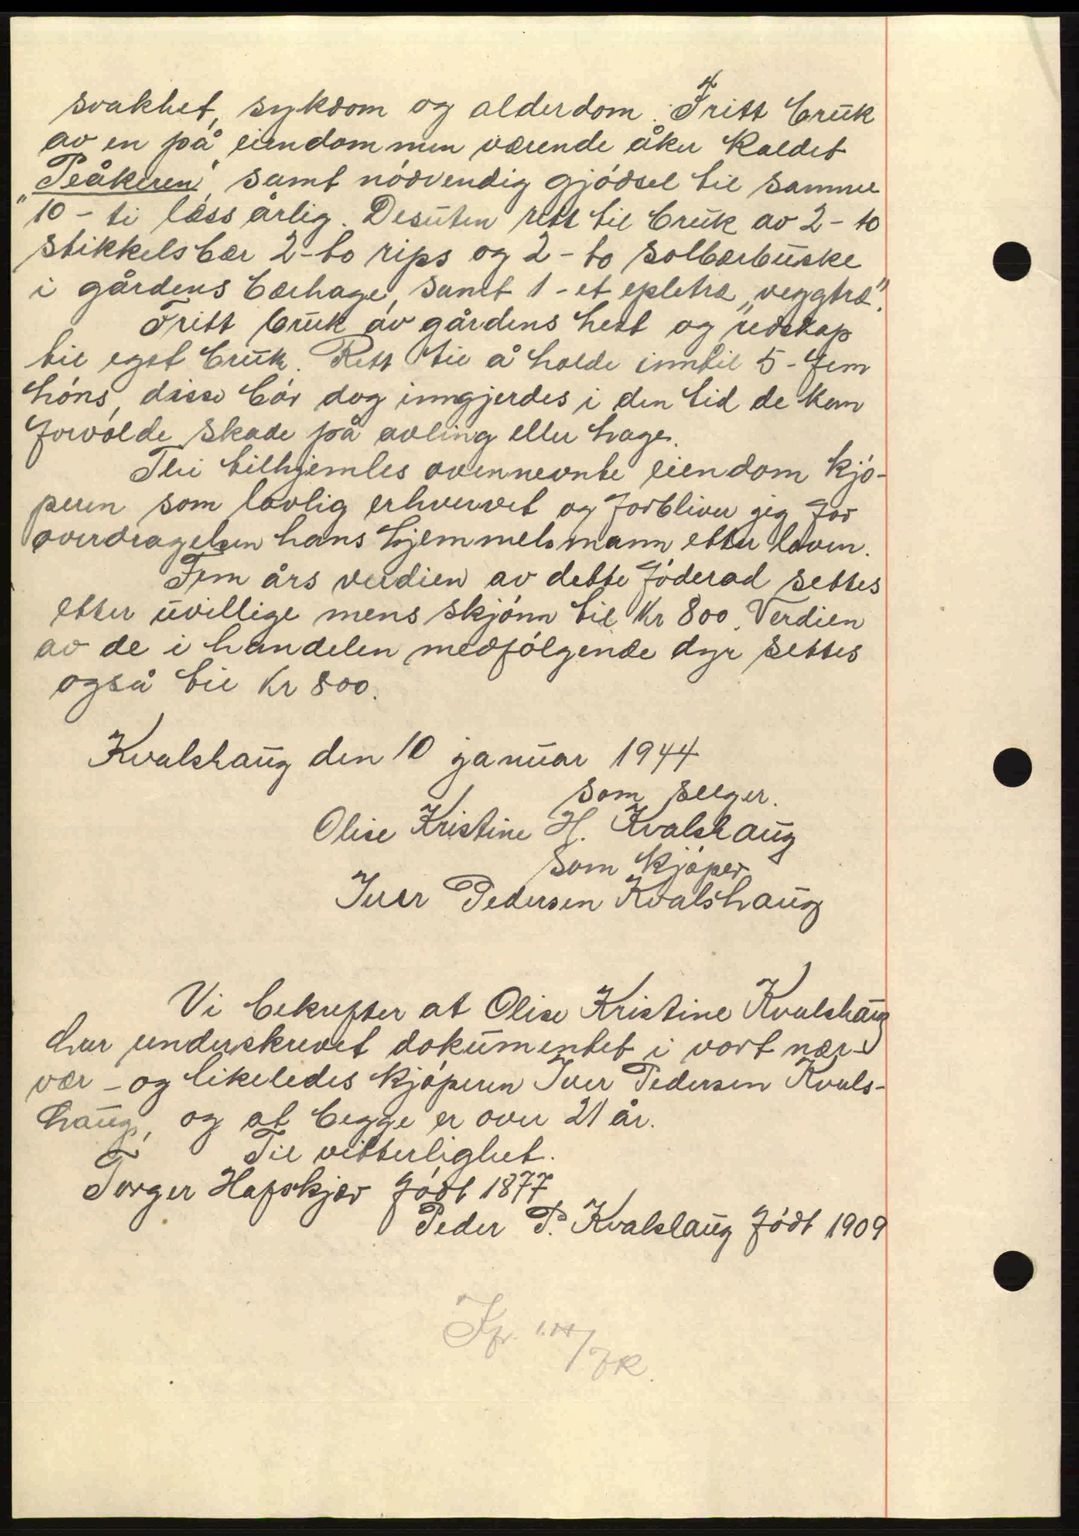 svakhet, sykdom og alderdom. Fritt bruk
av en på eiendommen værende åker kaldet
"Peåkeren", samt nödvendig gjödsel til samme
10 - ti læss årlig. Desuten rett til bruk av 2 - to
stikkelsbær 2 - to rips og 2 - to solbærbuske
i gårdens bærhage, samt 1 - et epletræ "veggtræ".
Fritt bruk av gårdens hest og redskap
til eget bruk. Rett til å holde inntil 5 - fem
höns, disse bör dog inngjerdes i den tid de kan
forvolde skade på avling eller hage.
Thi tilhjemles ovennevnte eiendom kjö-
peren som lovlig erhvervet og forbliver jeg for
overdragelsen hans hjemmelsmann etter loven.
Fem års verdien av dette föderad settes
etter uvillige mens skjönn til Kr 800. Verdien
av de i handelen medfölgende dyr settes
også til Kr 800.
Kvalshaug den 10 januar 1944
som selger.
Olise Kristine H. Kvalshaug
som kjöper
Iver Pedersen Kvalshaug
Vi bekrefter at Olise Kristine Kvalshaug
har underskrevet dokumentet i vort nær-
vær - og likeledes kjöperen Iver Pedersen Kvals-
haug, og at begge er over 21 år.
Til vitterlighet.
Torger Hafskjær födt 1877
Peder P. Kvalshaug födt 1909